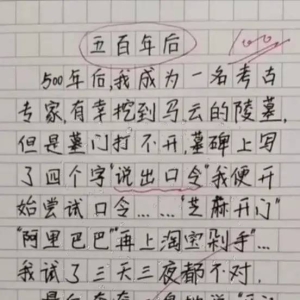 五百年后
100
500年后,我成为一名考古
专家,有幸挖到马云的陵墓,
但是墓门打不开,墓碑上写
了四个字"说出口令"我便开
始尝试口令……"芝麻开门"
"阿里巴巴"再上淘宝剁手"…
我试了三天三夜都不对.